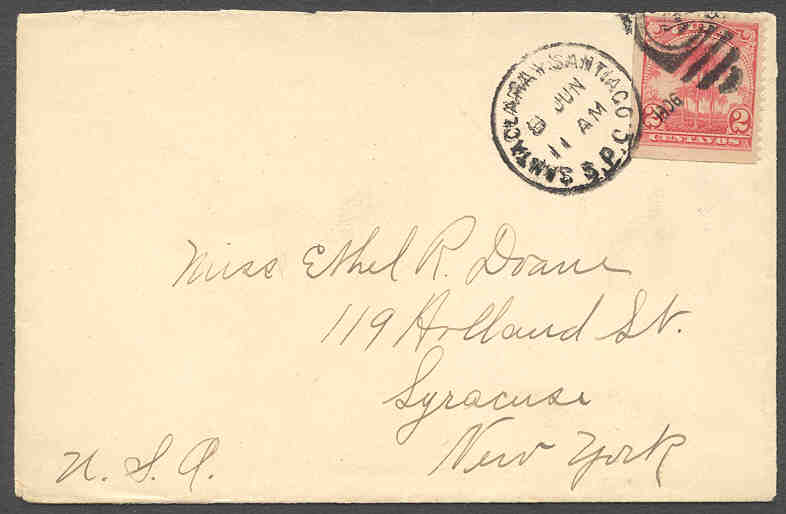 SANTACLARA Y SANTIAGO
JUN
9
11 AM
S.P.C.
2 2
CENTAVOS
Miss Ethel R. Doane
119 Holland St.
Syracuse
New York
U. S. A.